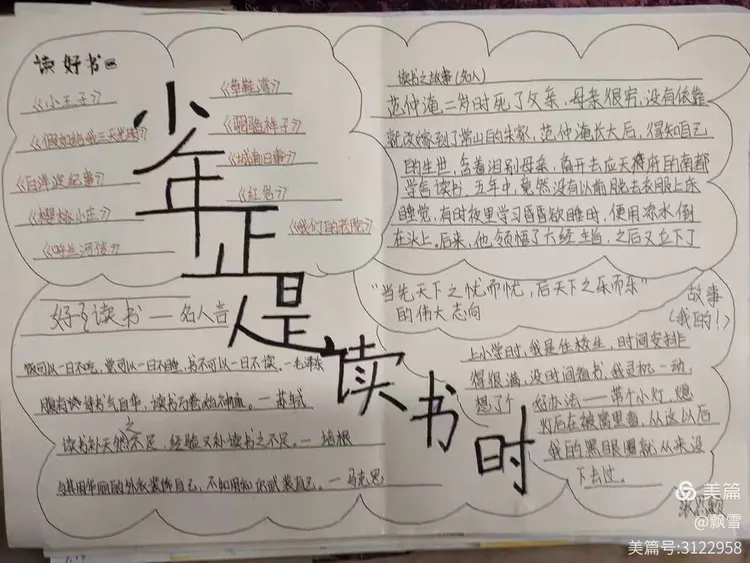 少年正是读书时
读好书
《小王子》
《假如给我三天光明》
《白洋淀纪事》
《樱桃小庄》
《呼兰河传》
《草鞋湾》
《骆驼祥子》
《城南旧事》
《红岩》
《我们的老院》
读书之故事(名人)
范仲淹二岁时死了父亲,母亲很穷,没有依靠
就改嫁到了常山的朱家,范仲淹长大后,得知自己
的生世,含着泪别母亲,离开去应天府的南都
学舍读书,五年中,竟然没有以前脱去衣服上床
睡觉,有时夜里学习昏昏欲睡时,便用凉水倒
在头上。后来,他领悟了六经主旨,之后又立下了
“当先天下之忧而忧,后天下之乐而乐”
的伟大志向
好 读书——名人言
饭可以一日不吃,觉可以一日不睡,书不可以一日不读。—毛泽东
腹有诗书气自华,读书万卷始神通。—苏轼
读书补天然之不足,经验又补读书之不足。—培根
与其用华丽的外衣装饰自己,不如用知识武装自己。—马克思
故事
(我的!)
上小学时,我是住校生,时间安排
得很满,没时间看书,我灵机一动,
想了个 好办法——带个小灯,熄
灯后在被窝里看,从这以后
我的黑眼圈就从来没
下去过。
美篇
@飘雪
美篇号:3122958